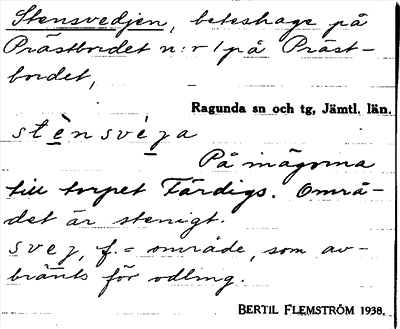 Stensvedjen, beteshage på
Prästbordet n:r 1 på Präst-
bordet,
Ragunda sn och tg, Jämtl. län.
stènsvèȷa
På inägorna
till torpet Färdigs. Områ-
det är stenigt.
svej, f. = område, som av-
bränts för odling.
BERTIL FLEMSTRÖM 1938.